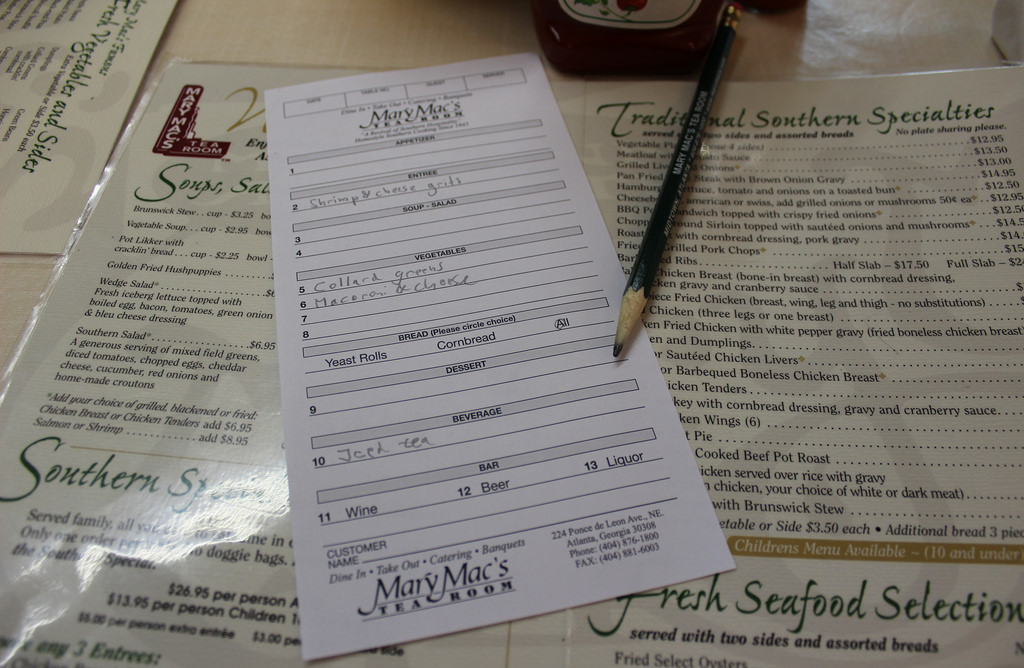 Mary Mac's Famous
Fresh Vegetables and Sides
MARY MAC'S
TEA
ROOM
Soups, Sal
Brunswick Stew.. cup - $3.25 bo
Vegetable Soup. .. cup - $2.95 bow
Pot Likker with
cracklin' bread.... cup - $2.25 bowl
Golden Fried Hushpuppies
Wedge Salad*
Fresh iceberg lettuce topped with
boiled egg, bacon, tomatoes, green onion
& bleu cheese dressing
Southern Salad* $6.95
A generous serving of mixed field greens,
diced tomatoes, chopped eggs, cheddar
cheese, cucumber, red onions and
home-made croutons
*Add your choice of grilled, blackened or fried:
Chicken Breast or Chicken Tenders add $6.95
Salmon or Shrimp add $8.95
Southern Spec
Served family, all you
Only one order per
the South
doggie bags.
Special.
$26.95 per person A
$13.95 per person Children
$5.00 per person extra entrée $3.00 pe
side
any 3 Entrees:
DATE TABLE NO. GUEST SERVER
Dine In • Take Out • Catering • Banquets
Mary Mac's
TEA ROOM
"A Revival of Southern Hospitality"
Homestyle Southern Cooking Since 1945
APPETIZER
1
ENTREE
2 Shrimp & cheese grits
SOUP - SALAD
3
4
VEGETABLES
5 Collard greens
6 Macaroni & cheese
7
8
BREAD (Please circle choice)
Yeast Rolls Cornbread All
DESSERT
9
BEVERAGE
10 Iced tea
BAR
11 Wine 12 Beer 13 Liquor
CUSTOMER
NAME
Dine In • Take Out • Catering • Banquets
Mary Mac's
TEA ROOM
224 Ponce de Leon Ave., NE.
Atlanta, Georgia 30308
Phone: (404) 876-1800
FAX: (404) 881-6003
MARY MAC'S TEA ROOM
Traditional Southern Specialties
served two sides and assorted breads No plate sharing please.
Vegetable Pl ose 4 sides) $12.95
Meatloaf w ato Sauce $13.50
Grilled Liv Onions* $13.00
Pan Fried Steak with Brown Onion Gravy $14.95
Hambur ettuce, tomato and onions on a toasted bun* $12.50
Cheeseb merican or swiss, add grilled onions or mushrooms 50¢ ea* $12.95
BBQ Po andwich topped with crispy fried onions* $12.50
Chopp ound Sirloin topped with sautéed onions and mushrooms*
Roast with cornbread dressing, pork gravy
Frie rilled Pork Chops*
Bar Ribs Half Slab – $17.50 Full Slab – $2
Chicken Breast (bone-in breast) with cornbread dressing,
ken gravy and cranberry sauce
iece Fried Chicken (breast, wing, leg and thigh - no substitutions)
Chicken (three legs or one breast)
en Fried Chicken with white pepper gravy (fried boneless chicken breast
en and Dumplings
or Sautéed Chicken Livers*
or Barbequed Boneless Chicken Breast*
icken Tenders
key with cornbread dressing, gravy and cranberry sauce
ken Wings (6)
t Pie
Cooked Beef Pot Roast
icken served over rice with gravy
n chicken, your choice of white or dark meat)
with Brunswick Stew
etable or Side $3.50 each • Additional bread 3 piec
Childrens Menu Available ~ (10 and under
Fresh Seafood Selection
served with two sides and assorted breads
Fried Select Oysters